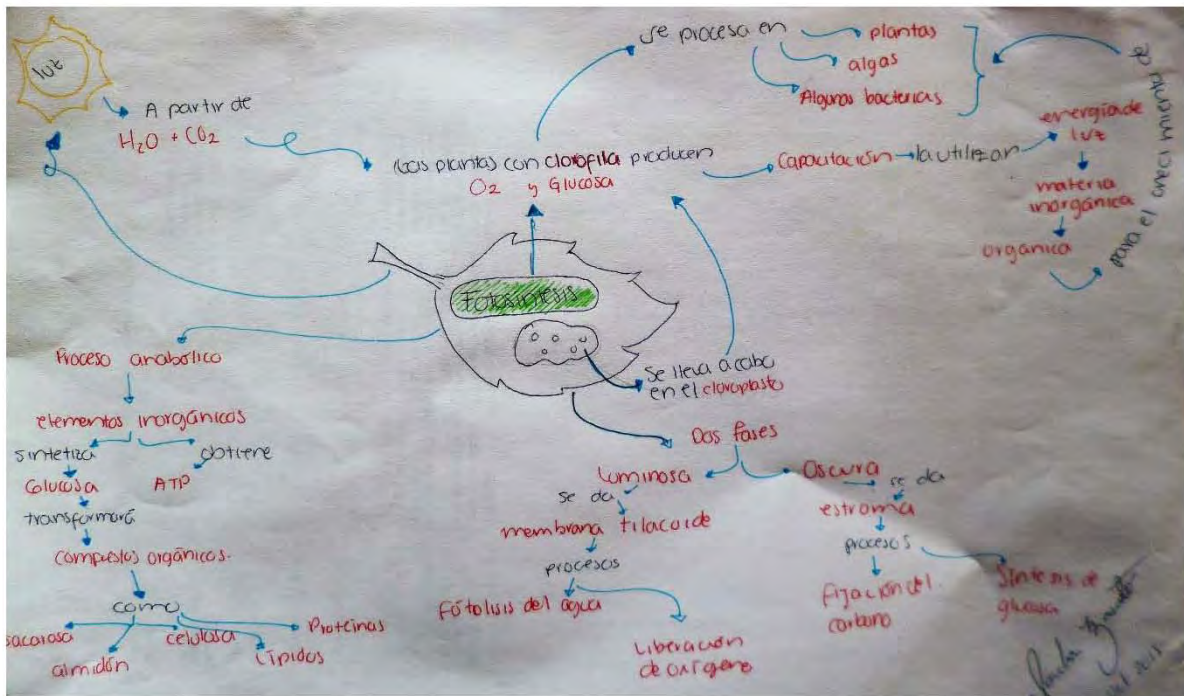 luz
A partir de
H2O + CO2
Las plantas con clorofila producen
O2 y Glucosa
se procesa en
plantas
algas
Algunas bacterias
Capacitación
la utilizan
energía de
luz
materia
inorgánica
orgánica
para el crecimiento de
Fotosíntesis
Se lleva a cabo
en el cloroplasto
Proceso anabólico
elementos inorgánicos
sintetiza
obtiene
Glucosa
ATP
transformará
compuestos orgánicos.
como
sacarosa
almidón
celulosa
Lípidos
Proteínas
Dos fases
luminosa
se da
membrana tilacoide
procesos
Fótolisis del agua
Liberación
de oxígeno
Oscura
se da
estroma
procesos
Fijación del
carbono
Síntesis de
glucosa